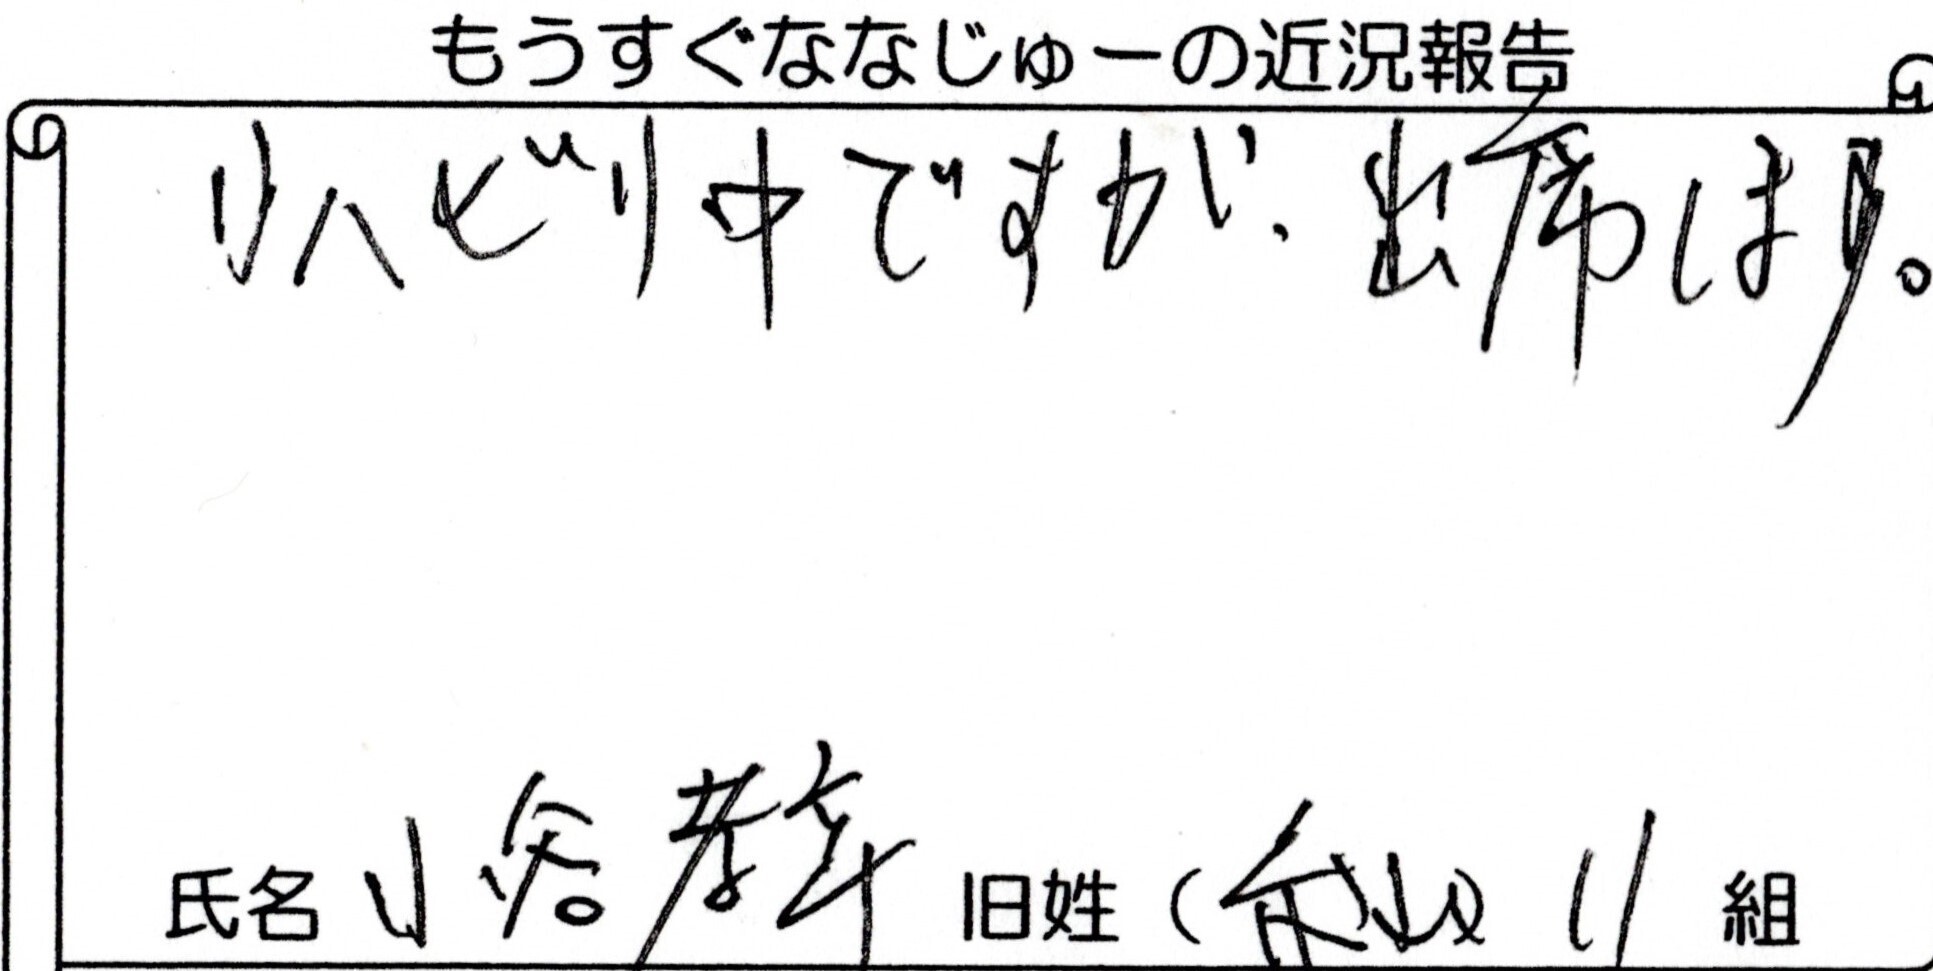 もうすぐななじゅーの近況報告
リハビリ中ですが、出席しまり。
氏名 小 孝 旧姓 ( ) 11 組